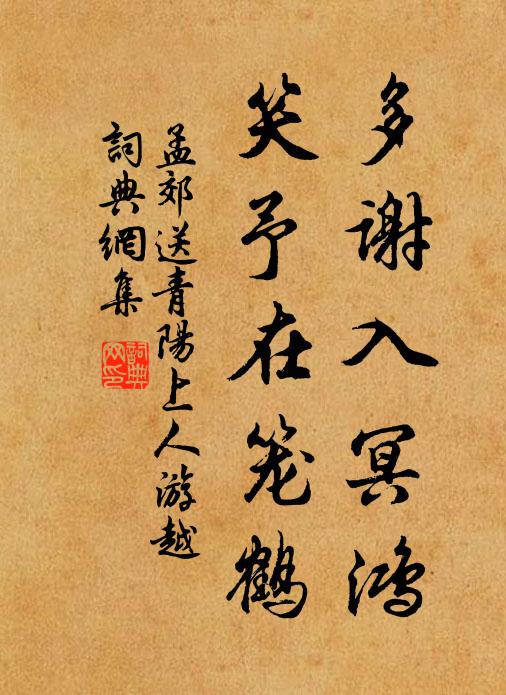 多谢入冥鸿
笑予在笼鹤
孟郊送青陽上人游越
詞典網集
詞典網印